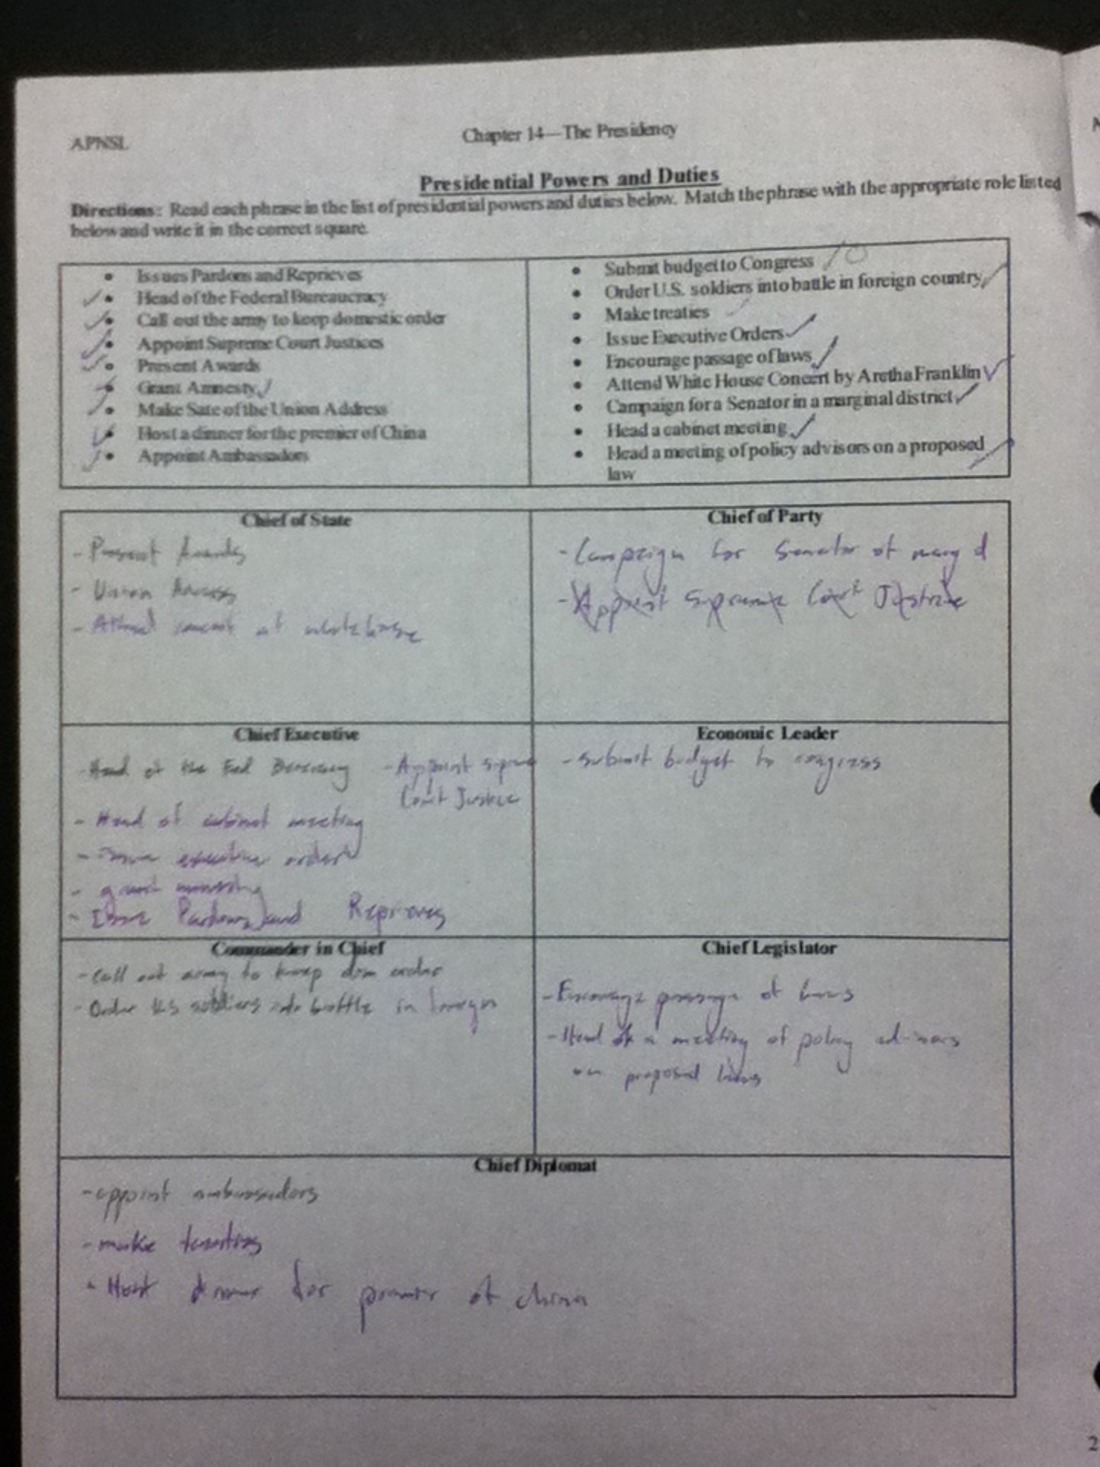 APNSL
Chapter 14—The Presidency
Presidential Powers and Duties
Directions: Read each phrase in the list of presidential powers and duties below. Match the phrase with the appropriate role listed
below and write it in the correct square.
• Issues Pardons and Reprieves
• Head of the Federal Bureaucracy
• Call out the army to keep domestic order
• Appoint Supreme Court Justices
• Present Awards
• Grant Amnesty
• Make Sate of the Union Address
• Host a dinner for the premier of China
• Appoint Ambassadors
• Submit budget to Congress
• Order U.S. soldiers into battle in foreign country
• Make treaties
• Issue Executive Orders
• Encourage passage of laws
• Attend White House Concert by Aretha Franklin
• Campaign for a Senator in a marginal district
• Head a cabinet meeting
• Head a meeting of policy advisors on a proposed
law
Chief of State
- Present Awards
- Union
- Attend concert at whitehouse
Chief of Party
- Campaign for Senator of marg d
- Appoint Supreme Court Justice
Chief Executive
- Head of the Fed
- Head of cabinet meeting
- Issue executive order
- grant
- Issue Pardons and Reprieves
- Appoint supreme
Court Justice
Economic Leader
- submit budget to congress
Commander in Chief
- call out army to keep dom order
- Order US soldiers into battle in foreign
Chief Legislator
- Encourage passage of laws
- Head of a meeting of policy advisors
on proposal laws
Chief Diplomat
- appoint ambassadors
- make
- Host dinner for premier of china
2